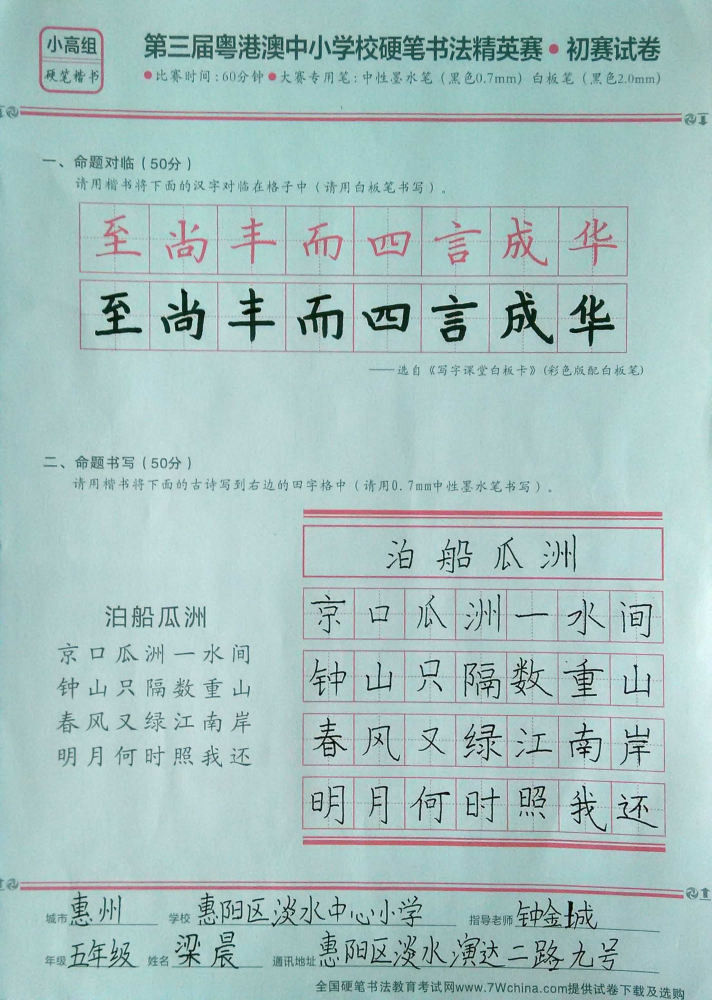 小高组
硬笔楷书
第三届粤港澳中小学校硬笔书法精英赛·初赛试卷
●比赛时间:60分钟●大赛专用笔:中性墨水笔(黑色0.7mm) 白板笔(黑色2.0mm)
一、命题对临(50分)
请用楷书将下面的汉字对临在格子中(请用白板笔书写)。
至尚丰而四言成华
至尚丰而四言成华
——选自《写字课堂白板卡》(彩色版配白板笔)
二、命题书写(50分)
请用楷书将下面的古诗写到右边的田字格中(请用0.7mm中性墨水笔书写)。
泊船瓜洲
京口瓜洲一水间
钟山只隔数重山
春风又绿江南岸
明月何时照我还
泊船瓜洲
京口瓜洲一水间
钟山只隔数重山
春风又绿江南岸
明月何时照我还
城市 惠州 学校 惠阳区淡水中心小学 指导老师 钟金城
年级 五年级 姓名 梁晨 通讯地址 惠阳区淡水演达二路九号
全国硬笔书法教育考试网www.7Wchina.com提供试卷下载及选购